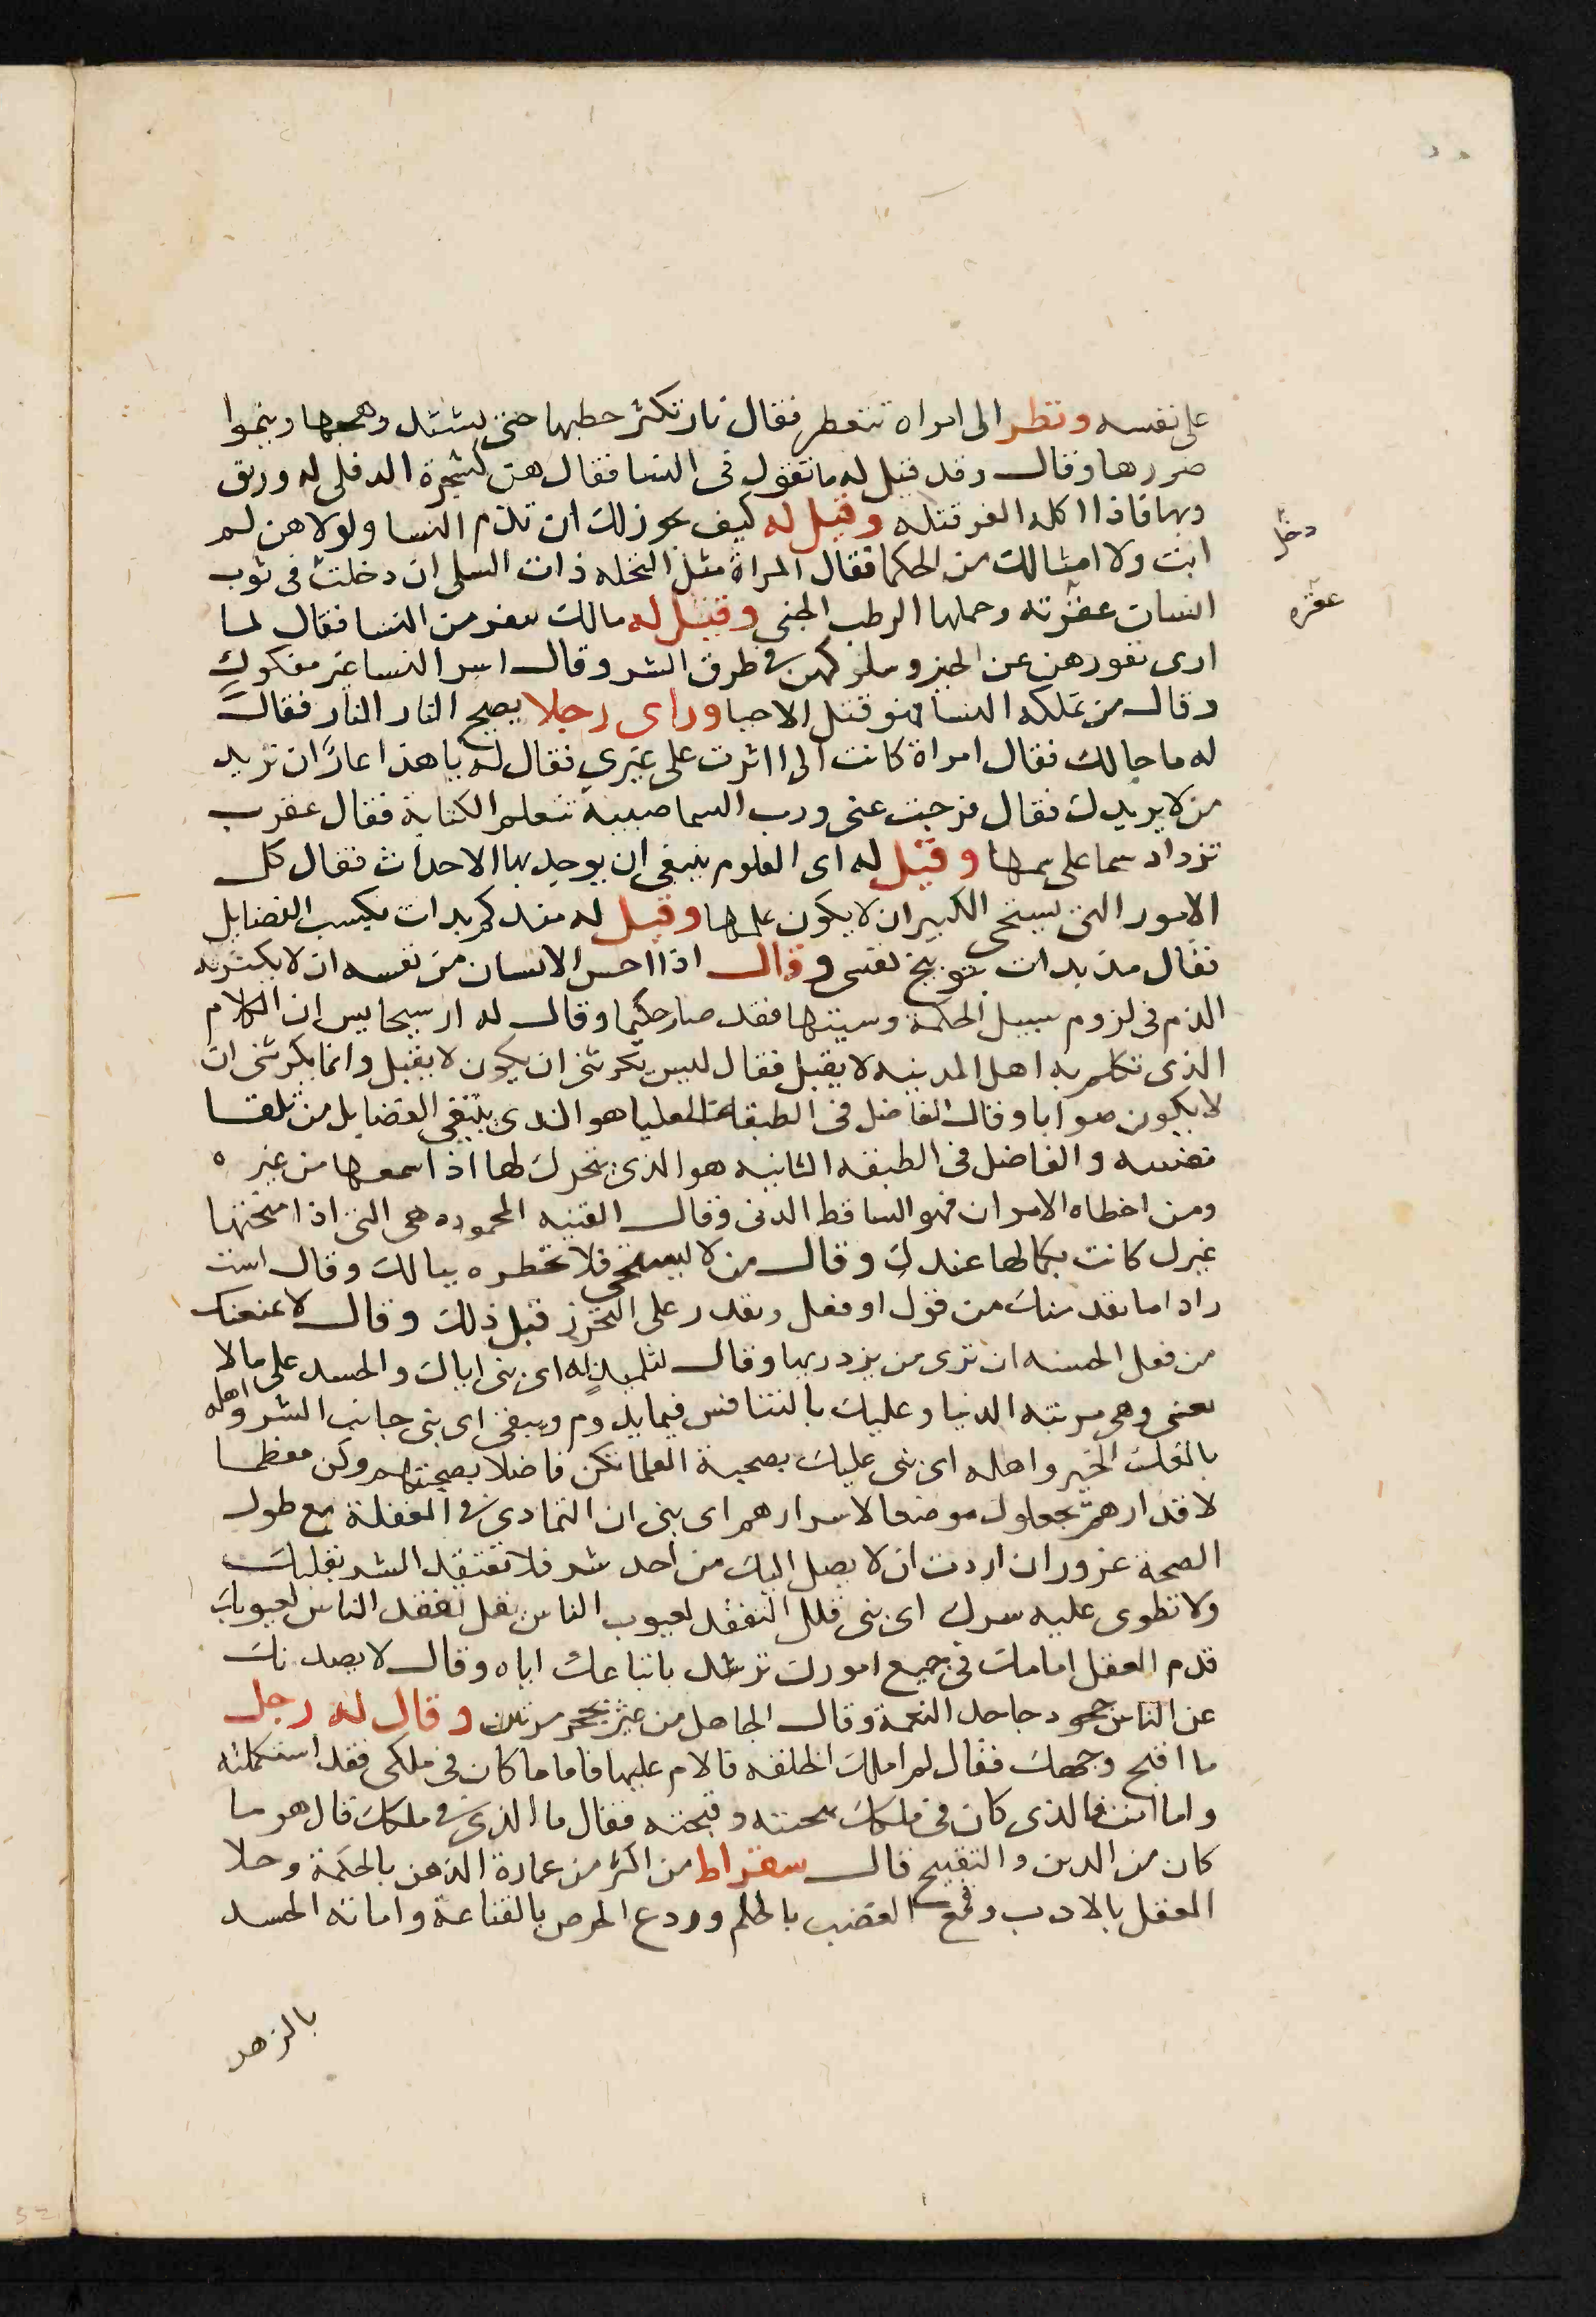 على نفسه ونظر الى امراه تتعطر فقال نار تكثر حطبها حتى يشتد وهجها وينموا
ضررها وقال وقد قيل له ما تقول فى النسا فقال هن كشجرة الدفلى له ورىق
وبها فاذا اكله الغر قتله وقيل له كيف يجوز لك ان تذم النسا ولولاهن لم
انت ولا امثالك من الحكما فقال المراة مثل النخله ذات السلى ان دخلت فى ثوب
انسان عقرته وحملها الرطب الجنى وقيل له مالك تفر من النسا فقال لما
ارى نفورهن عن الخير وسلوكهن فى طرق الشر وقال اسر النسا غير مفكوك
وقال من تملكه النسا فهو قتل الاحيا وراى رجلا يصيح النار النار فقال
له ما حالك فقال امراة كانت لى اثرت على غيري فقال له يا هذا عارًا ان تريد
من لا يريدك فقال فرجت عنى ورب السما صبية تتعلم الكتابة فقال عقرب
تزداد سما على سمها وقيل له اى العلوم ينبغى ان يوحد بها الاحداث فقال كل
الامور التى يستحى الكبير ان لا يكون علمها وقيل له منذ كم بدات تكسب الفضايل
فقال منذ بدات بتوبيخ نفسى وقال اذا احس الانسان من نفسه ان لا يكترث به
الذم فى لزوم سبيل الحكمة وسيتها فقد صار حكيما وقال له ارسيجانيس ان الكلام
الذى تكلم به اهل المدينه لا يقبل فقال ليس يكرثنى ان يكون لا يقبل وانما يكرثنى ان
لا يكون صوابا وقال الفاضل فى الطبقات العليا هو الذى يبتغى الفضايل من تلقا
نفسه والفاضل فى الطبقه الثانيه هو الذى يتحرك لها اذا سمعها من غيره
ومن اخطاه الامران فهو الساقط الدنى وقال القنيه المحموده هى التى اذا منحتها
غيرك كانت بكمالها عندك وقال من لا يستحى فلا تخطره ببالك وقال است
راد اما نقد مناك من قول او فعل وتقدر على التحرز قبل ذلك وقال لا يمنعنك
من فعل الحسنه ان ترى من يزدريها وقال لتلميذٍ له اى بنى اياك والحسد على ما لا
يعنى وهى مرتبه الدنيا وعليك بالتنافس فيما يدوم ويبقى اى بنى جانب الشر واهله
بالفلت الخير واهله اى بنى عليك بصحبة العلما تكن فاضلا بصحبتهم وكن معظما
لاقدارهم يجعلوك موضعا لاسرارهم اى بنى ان التمادى فى الغفلة مع طول
الصحة غرور ان اردت ان لا يصل اليك من احد شر فلا تعتقد الشر بقلبك
ولا تطوى عليه سرك اى بنى قلل التفقد لعيوب الناس يقل تفقد الناس لعيوبك
قدم العقل امامك فى جميع امورك ترشد باتباعك اياه وقال لا يصدنك
عن الناس جحود جاحد النعمة وقال الجاهل من عثر بحجر مرتين وقال له رجل
ما اقبح وجهك فقال لم املك الخلقه فالام عليها فاما ما كان فى ملكى فقد استكملته
واما انت فالذى كان فى ملكك هجنته وقبحته فقال ما الذى فى ملكك قال هو ما
كان من الدين والتقبيح قال سقراط من اكثر من عمارة الذهن بالحكمة وجلا
العقل بالادب وقمع الغضب بالحلم وردع الحرص بالقناعة وامانه الحسد
بالزهد
دخل
عقره